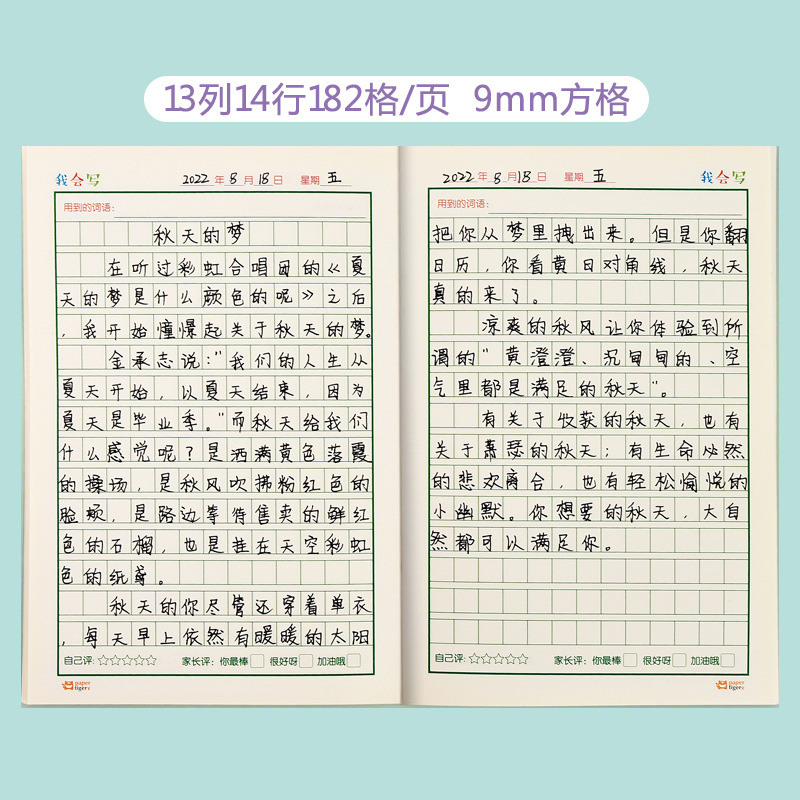 13列14行182格/页 9mm方格
我会写 2022年8月18日 星期五
用到的词语:
秋天的梦
在听过彩虹合唱团的《夏
天的梦是什么颜色的呢》之后
,我开始憧憬起关于秋天的梦。
金承志说:"我们的人生从
夏天开始,以夏天结束,因为
夏天是毕业季。"而秋天给我们
什么感觉呢?是洒满黄色落霞
的操场,是秋风吹拂粉红色的
脸颊,是路边等待售卖的鲜红
色的石榴,也是挂在天空彩虹
色的纸鸢。
秋天的你尽管还穿着单衣
,每天早上依然有暖暖的太阳
自己评:☆☆☆☆☆ 家长评:你最棒 很好呀 加油哦
paper tiger
2022年8月18日 星期五 我会写
用到的词语:
把你从梦里拽出来。但是你翻
日历,你看黄日对角线,秋天
真的来了。
凉爽的秋风让你体验到所
谓的"黄澄澄、沉甸甸的、空
气里都是满足的秋天"。
有关于收获的秋天,也有
关于萧瑟的秋天;有生命必然
的悲欢离合,也有轻松愉悦的
小幽默。你想要的秋天,大自
然都可以满足你。
自己评:☆☆☆☆☆ 家长评:你最棒 很好呀 加油哦
paper tiger